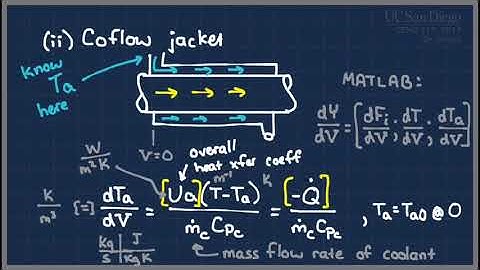 UC San Diego
(ii) Coflow jacket
know
Ta
here
MATLAB:
dY/dV = [dFi/dV, dT/dV, dTa/dV]
V=0
overall
heat xfer coeff
W/m²K
m⁻¹
K
K/m³ [=] dTa/dV = [Ua](T-Ta)/ṁc Cpc = [-Q̇]/ṁc Cpc , Ta=Ta0 @ 0
kg/s J/kg K
mass flow rate of coolant